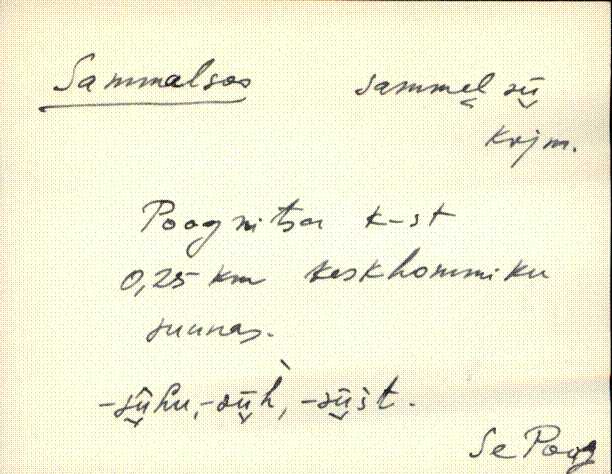 Sammalsoo sammel̬ sū̬
krjm.
Poognitsa k-st
0,25 km keskhommiku
suunas.
-sū̬hu, -sū̬h̀, -sū̬st.
Se Poog